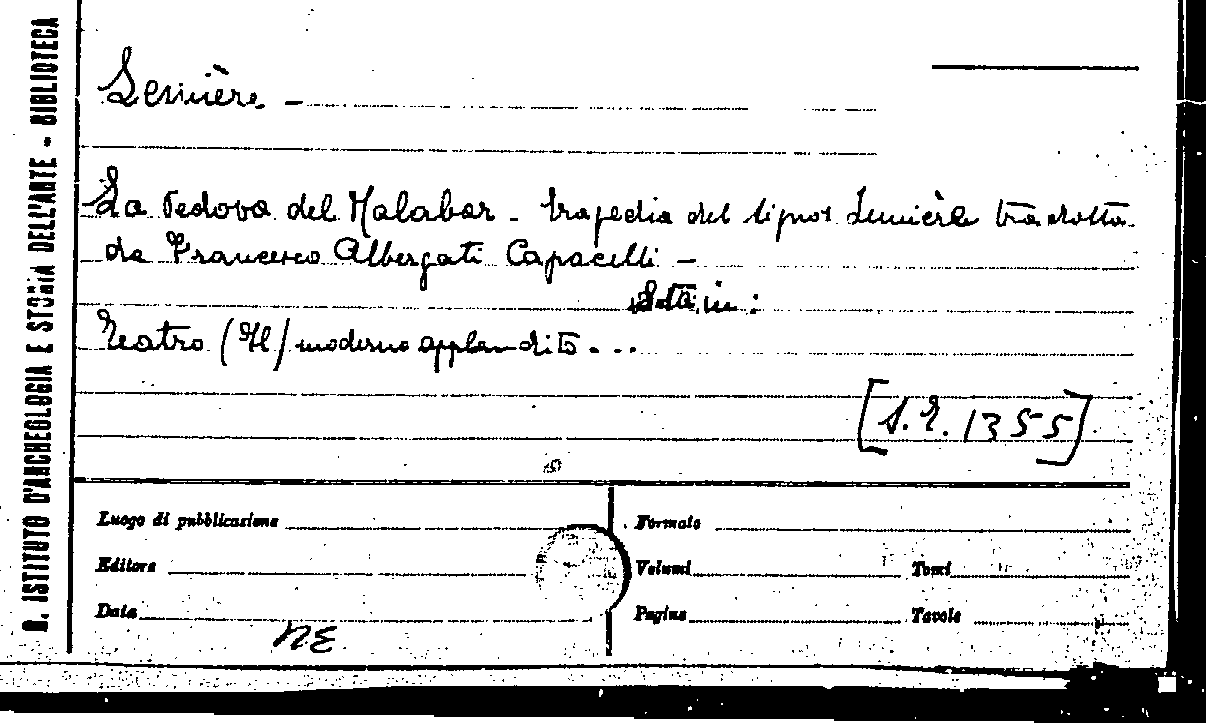 R. ISTITUTO D'ARCHEOLOGIA E STORIA DELL'ARTE - BIBLIOTECA
Lemière -
La Vedova del Malabar - tragedia del signor Lemière tradotta
da Francesco Albergati Capacelli -
Sta in:
Teatro (Il) moderno applaudito...
[S.R. 1355]
Luogo di pubblicazione
Formato
Editore
Volumi
Tomi
Data
Pagine
Tavole
NE